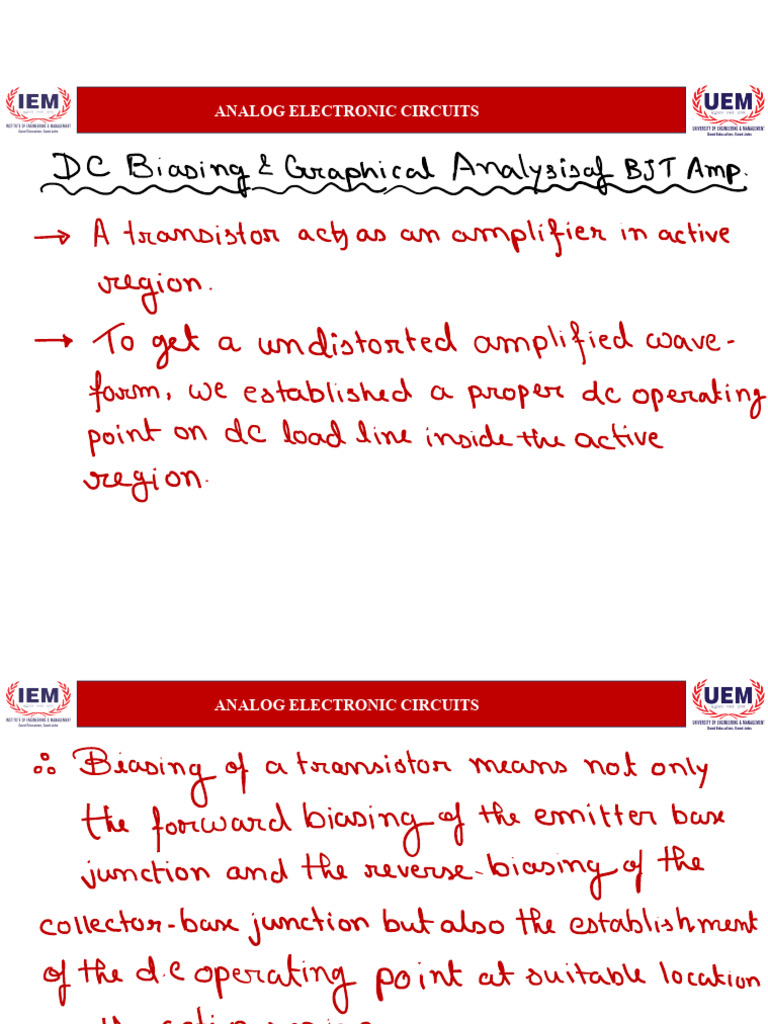 IEM
INSTITUTE OF ENGINEERING & MANAGEMENT
Good Education, Good Jobs
ANALOG ELECTRONIC CIRCUITS
UEM
UNIVERSITY OF ENGINEERING & MANAGEMENT
Good Education, Good Jobs
DC Biasing & Graphical Analysis of BJT Amp.
→ A transistor acts as an amplifier in active
region.
→ To get a undistorted amplified wave-
form, we established a proper dc operating
point on dc load line inside the active
region.
IEM
INSTITUTE OF ENGINEERING & MANAGEMENT
Good Education, Good Jobs
ANALOG ELECTRONIC CIRCUITS
UEM
UNIVERSITY OF ENGINEERING & MANAGEMENT
Good Education, Good Jobs
∴ Biasing of a transistor means not only
the forward biasing of the emitter base
junction and the reverse-biasing of the
collector-base junction but also the establishment
of the d.c operating point at suitable location